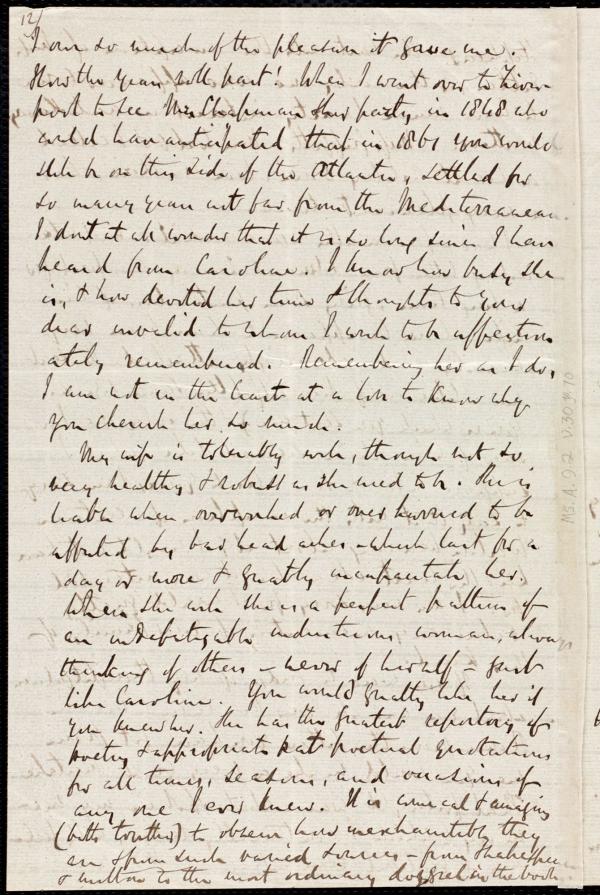 12/
I owe so much of the pleasure it gave me.
How the years roll past! When I went over to Liver-
pool to see Mrs Chapman & her party, in 1848 who
could have anticipated that in 1861 you would
still be on this side of the Atlantic, settled for
so many years not far from the Mediterranean.
I don't at all wonder that it is so long since I have
heard from Caroline. I know how busy she
is, & how devoted her time & thoughts to your
dear invalid to whom I wish to be affection
ately remembered. Remembering her as I do,
I am not in the least at a loss to know why
you cherish her so much.
My wife is tolerably well, though not so
very healthy & robust as she used to be. She is
liable when overworked or over hurried to be
affected by bad head aches - which last for a
day or more & greatly incapacitate her.
When she is well she is a perfect pattern of
an indefatigable industrious woman, always
thinking of others - never of herself - just
like Caroline. You would greatly like her if
you knew her. She has the greatest repertory of
poetry & appropriate pat poetical quotations
for all times, seasons, and occasions of
any one I ever knew. It is comical & amazing
(both together) to observe how inexhaustible they
are & from such varied sources - from Shakespeare
& Milton to the most ordinary doggrel in the book
Ms. A. 9.2 v. 30 p 70